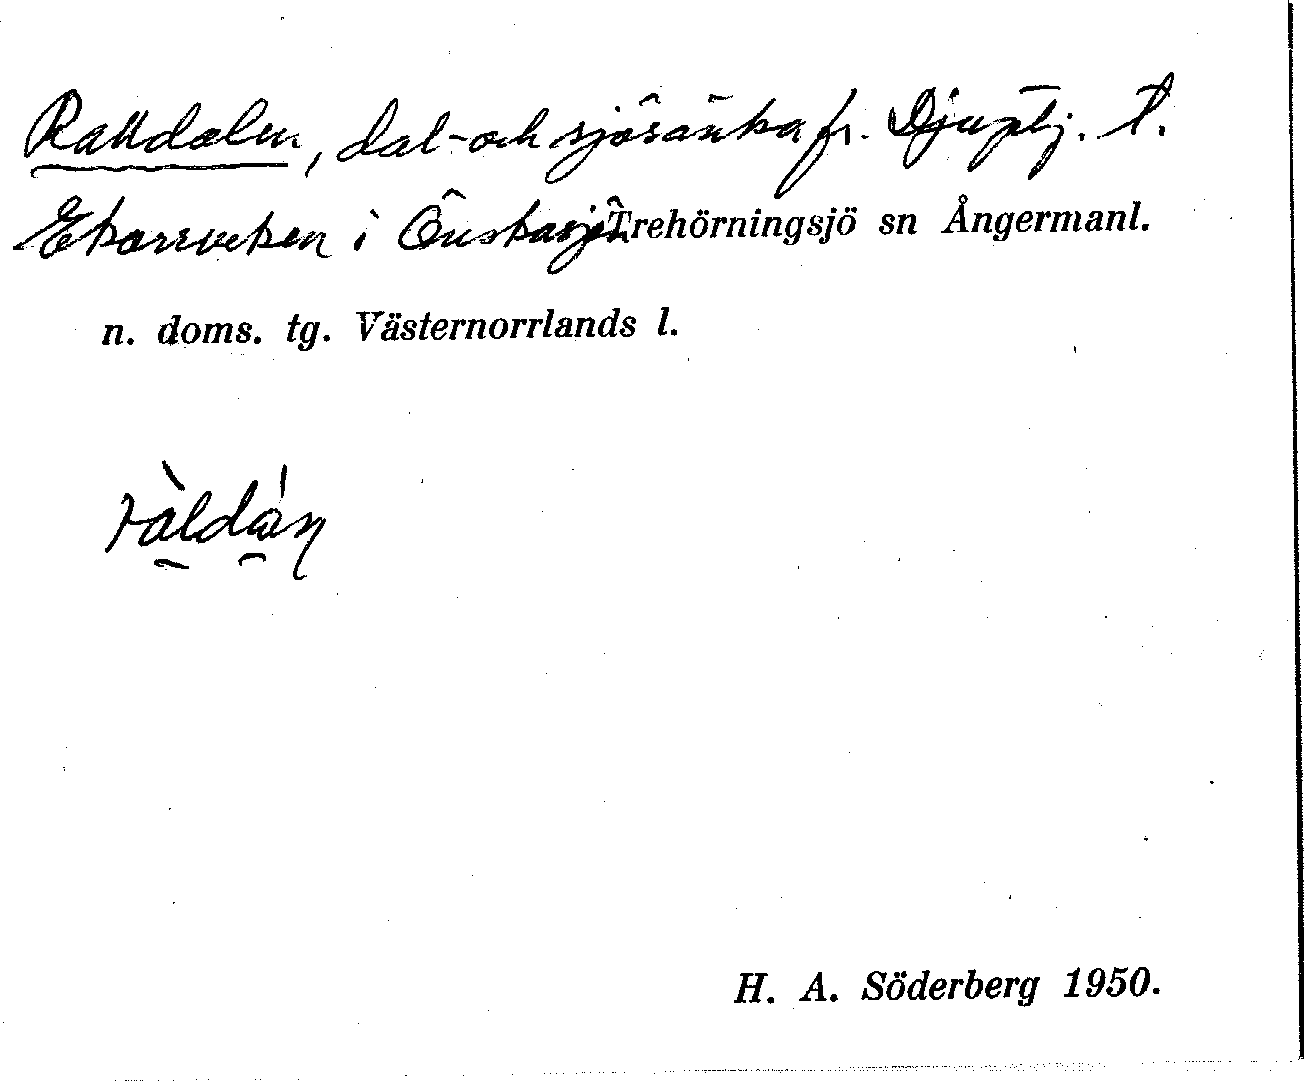 Ralldalen, dal- och sjösänka fr. Djuptj. t.
Ekorrviken i Önskasjön Trehörningsjö sn Ångermanl.
n. doms. tg. Västernorrlands l.
ràldán
H. A. Söderberg 1950.